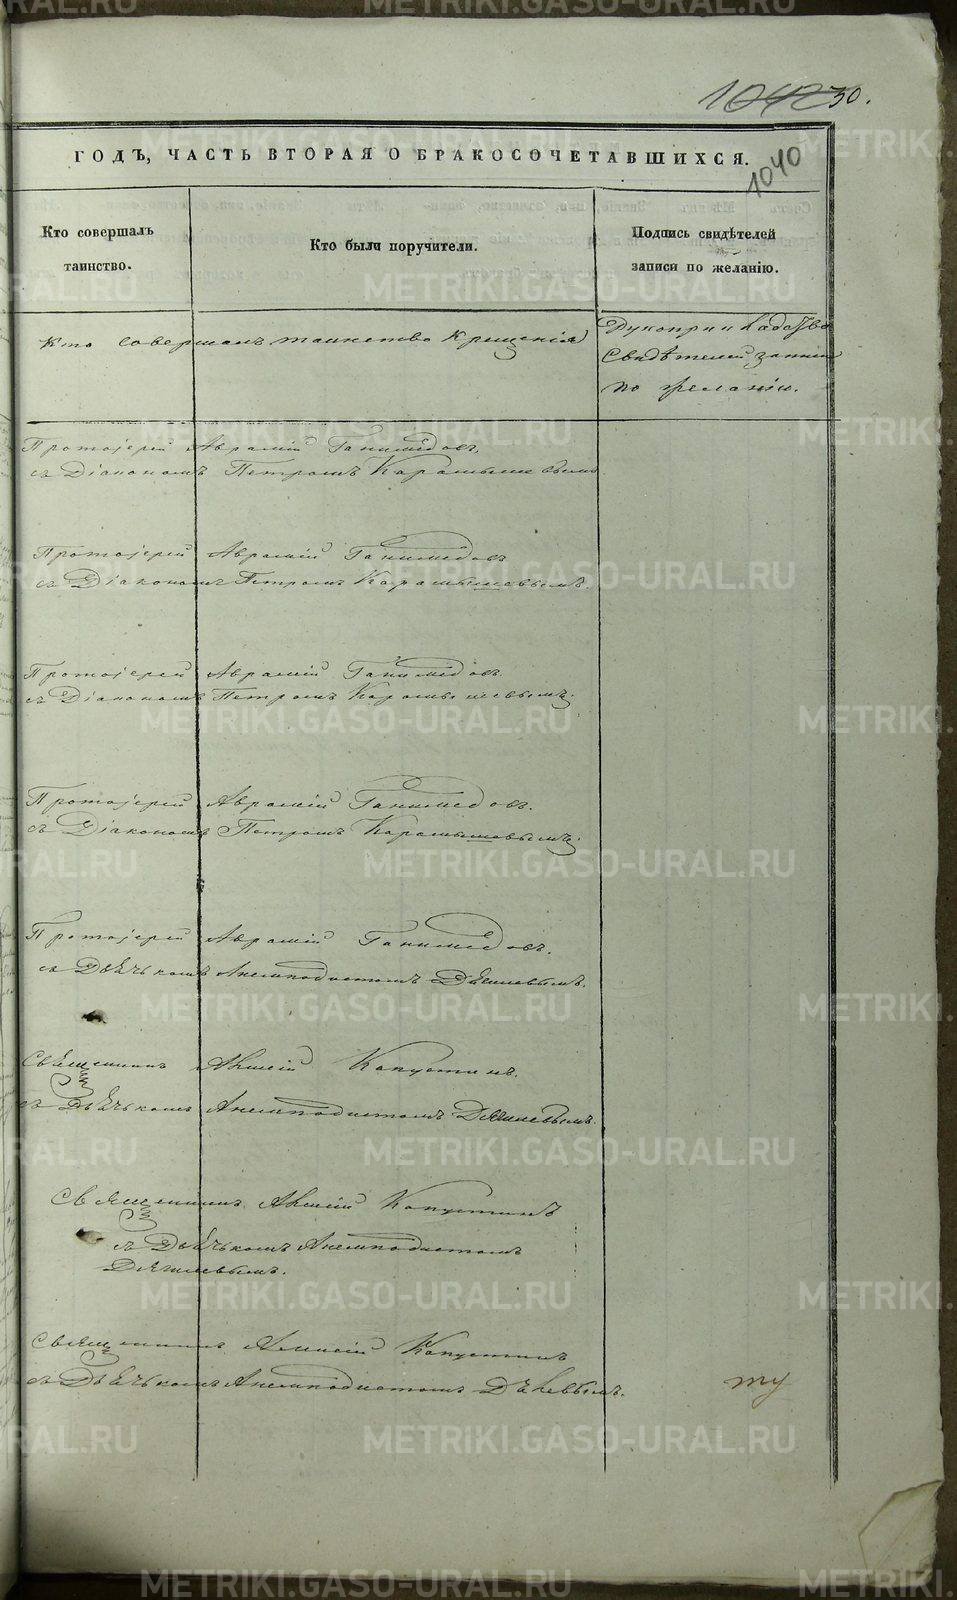 1042 30.
ГОДЪ, ЧАСТЬ ВТОРАЯ О БРАКОСОЧЕТАВШИХСЯ.
1040
Кто совершалъ
таинство.
Кто были поручители.
Подпись свидѣтелей
записи по желанію.
Кто совершалъ таинство Крещенія
Рукоприкладство
Свидѣтелей записи
по желанію.
Протоіерей Аврамій Ганимедовъ,
съ Діакономъ Петромъ Карамышевымъ
Протоіерей Аврамій Ганимедовъ
съ Діакономъ Петромъ Карамышевымъ.
Протоіерей Аврамій Ганимедовъ.
съ Діакономъ Петромъ Карамышевымъ.
Протоіерей Аврамій Ганимедовъ.
съ Діакономъ Петромъ Карамышевымъ.
Протоіерей Аврамій Ганимедовъ.
съ Дьячькомъ Анемподистомъ
Священникъ Капустинъ.
съ Дьячькомъ Анемподистомъ
Священникъ Капустинъ
съ Дьячькомъ Анемподистомъ
Священникъ Капустинъ
съ Дьячькомъ Анемподистомъ
METRIKI.GASO-URAL.RU